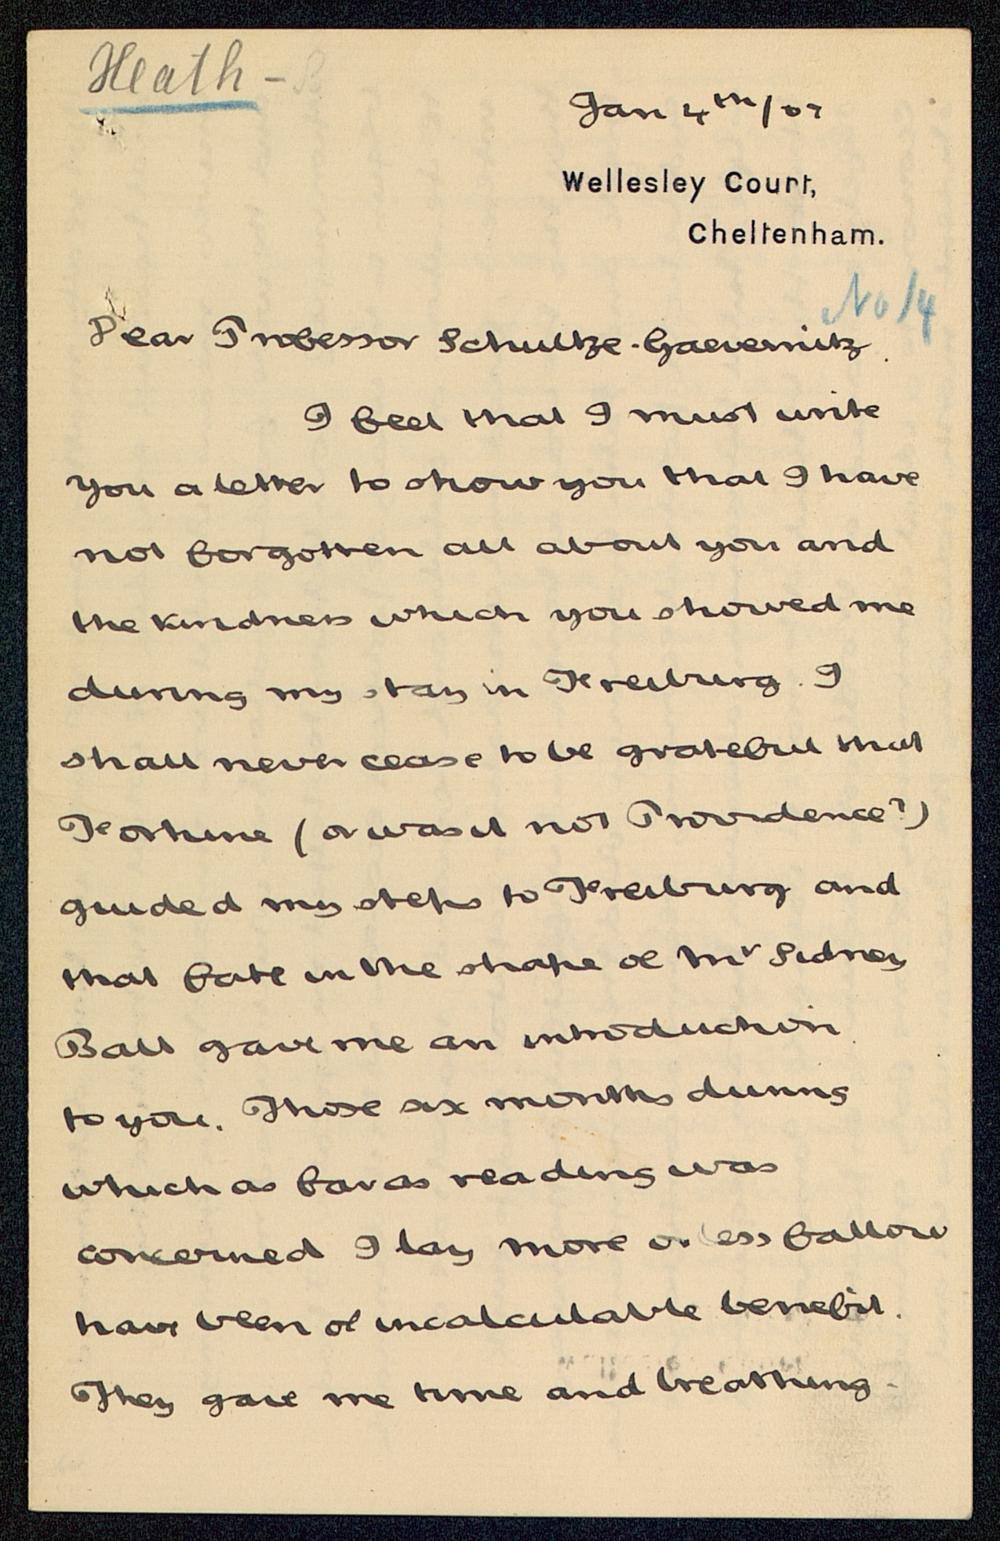 Heath -
Jan 4th/07
Wellesley Court,
Cheltenham.
No 14
Dear Professor Schultze-Gaevernitz
I feel that I must write
you a letter to show you that I have
not forgotten all about you and
the kindness which you showed me
during my stay in Freiburg. I
shall never cease to be grateful that
Fortune (or was it not Providence?)
guided my steps to Freiburg and
that fate in the shape of Mr Sidney
Ball gave me an introduction
to you. Those six months during
which as far as reading was
concerned I lay more or less fallow
have been of incalculable benefit.
They gave me time and breathing-